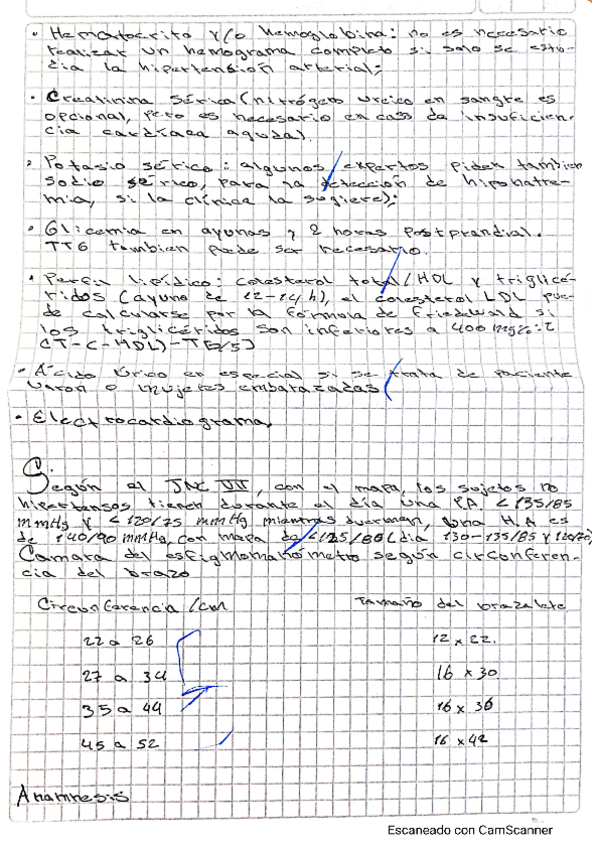 · Hematocrito y/o hemoglobina: no es necesario
realizar un hemograma completo si solo se estu-
dia la hipertensión arterial;
· Creatinina sérica (nitrógeno ureico en sangre es
opcional, pero es necesario en caso de insuficien-
cia cardíaca aguda).
· Potasio sérico: algunos expertos piden tambien
sodio sérico, para la detección de hiponatre-
mia, si la clínica la sugiere);
· Glicemia en ayunas y 2 horas postprandial.
TTG tambien puede ser necesario.
· Perfil lipídico: colesterol total/HDL y triglicé-
ridos (ayuno de 12-14 h), el colesterol LDL pue-
de calcularse por la fórmula de Friedewald si
los triglicéridos son inferiores a 400 mg%:
CT-C-HDL)-T
· Ácido úrico en especial si se trata de paciente
varon o mujeres embarazadas
· Electrocardiograma,
Según el JNC VII, con el mapa, los sujetos no
hipertensos tienen durante el día una P.A. <135/85
mmHg y <120/75 mmHg mientras duerman, una H.A es
de 140/90 mmHg con mapa de <125/80 (dia 130-135/85 y 120/70)
Camara del esfigmomanómetro según circonferen-
cia del brazo
Circunferencia /cm Tamaño del brazalete
22 a 26 12 x 22.
27 a 34 16 x 30
35 a 44 16 x 36
45 a 52 16 x 42
Anamnesis
Escaneado con CamScanner